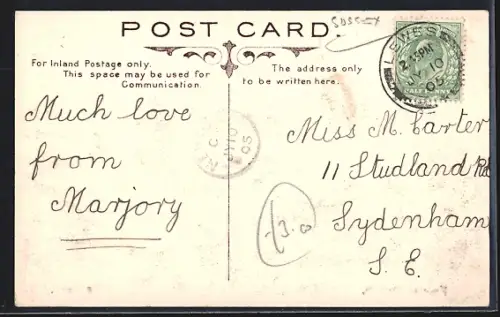 SUSSEX
POST CARD.
For Inland Postage only.
This space may be used for
Communication.
The address only
to be written here.
LEWES
2.15PM
JY 10
05
HALFPENNY
Much love
from
Marjory
JY 10
05
Miss M. Carter
11 Studland Rd
Sydenham
S. E.